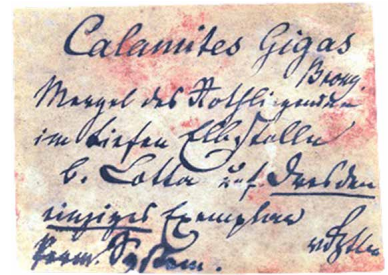 Calamites Gigas
Brong.
Mergel des Rothliegenden
im tiefen Elbstolln
b. Cotta u.f. Dresden
einziges Exemplar
Perm. System.